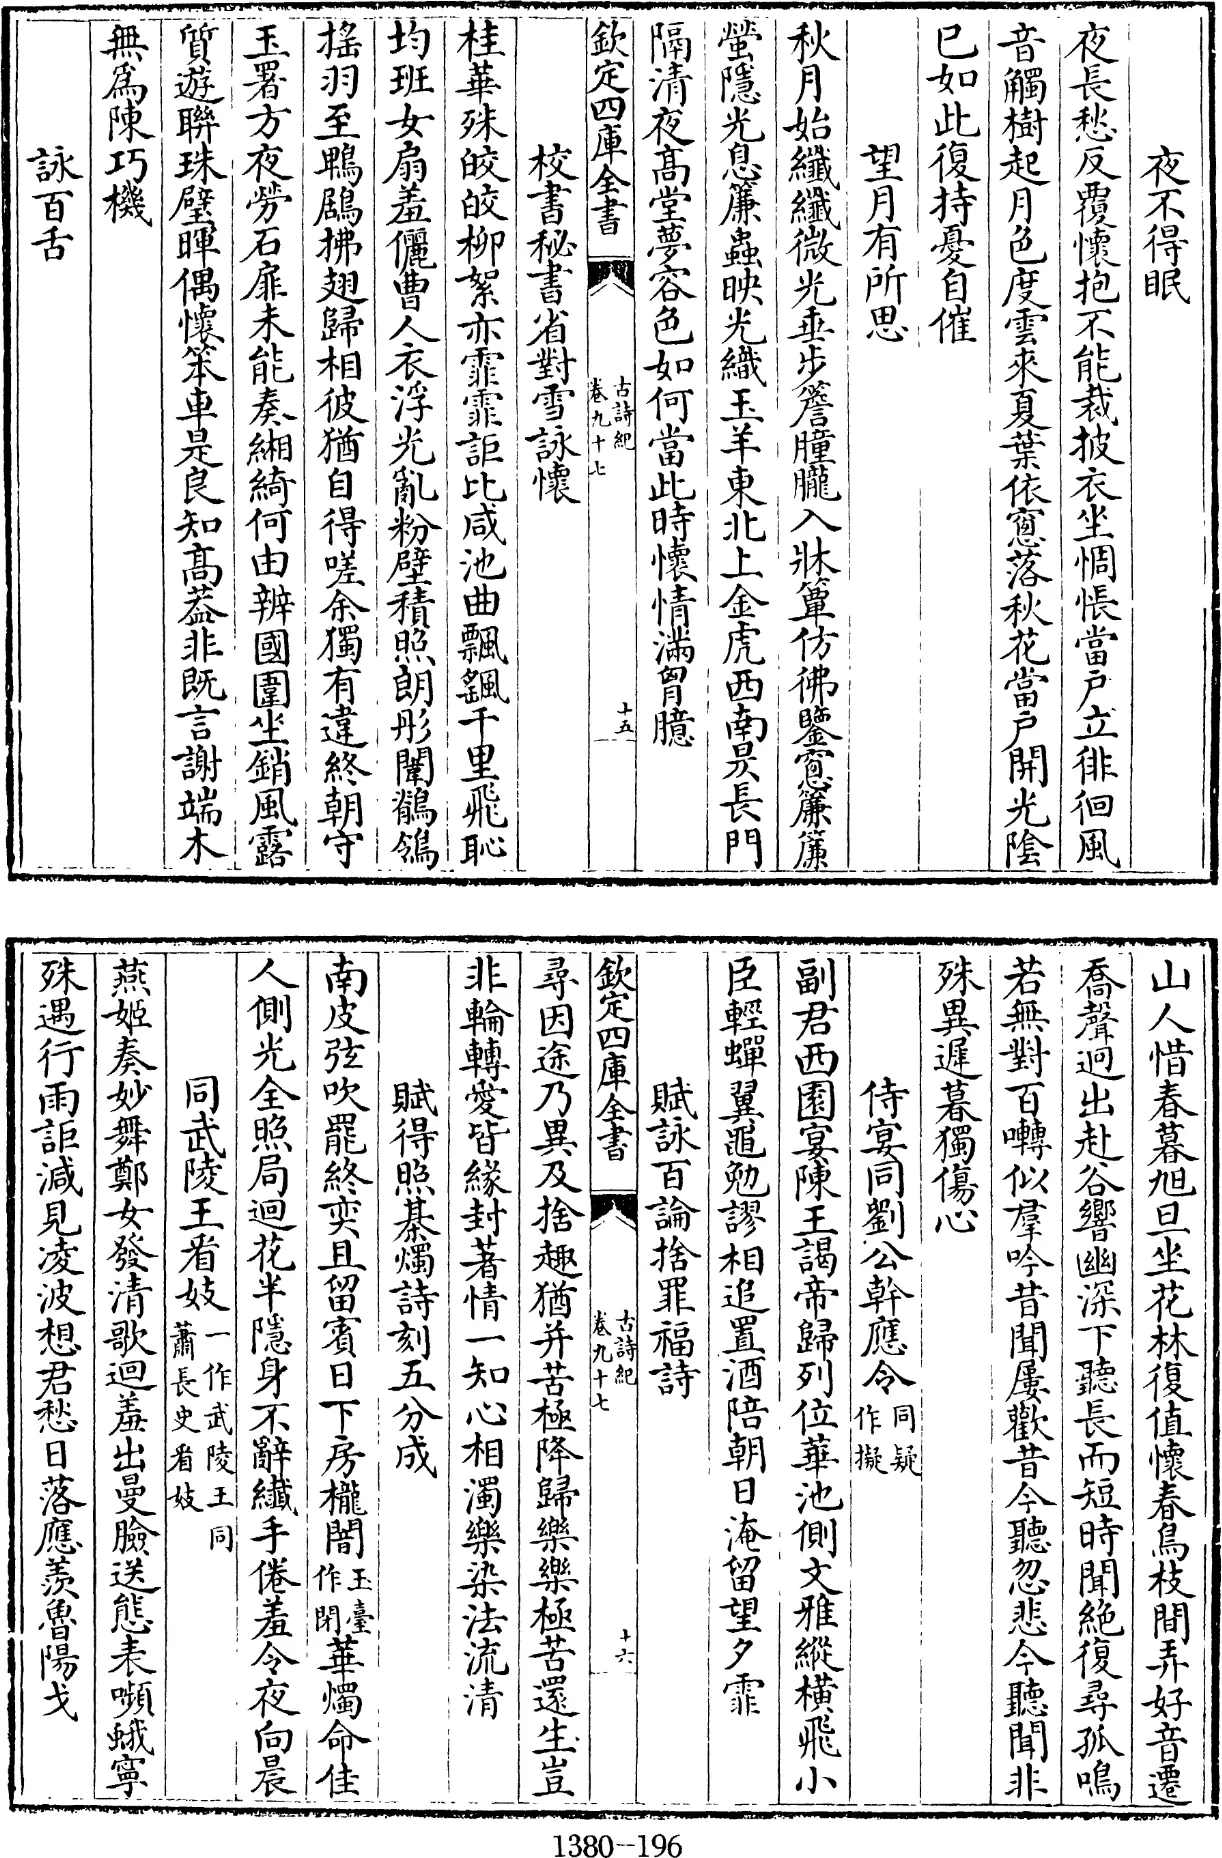 夜不得眠
夜長愁反覆懷抱不能裁披衣坐惆悵當戶立徘徊風
音觸樹起月色度雲來夏葉依窻落秋花當戶開光陰
已如此復持憂自催
望月有所思
秋月始纖纖微光垂步簷朣朧入牀簟仿彿鑒窻簾簾
螢隱光息簾蟲映光織玉羊東北上金虎西南昃長門
隔清夜髙堂夢容色如何當此時懷情滿胷臆
欽定四庫全書
古詩紀
卷九十七
十五
校書秘書省對雪詠懷
桂華殊皎皎柳絮亦霏霏詎比咸池曲飄颻千里飛恥
均班女扇羞儷曹人衣浮光亂粉壁積照朗彤闈鶺鴒
搖羽至鵯鶋拂翅歸相彼猶自得嗟余獨有違終朝守
玉署方夜勞石扉未能奏緗綺何由辨國圍坐銷風露
質遊聯珠璧暉偶懷笨車是良知髙葢非既言謝端木
無為陳巧機
詠百舌
山人惜春暮旭旦坐花林復值懷春鳥枝間弄好音遷
喬聲迥出赴谷響幽深下聽長而短時聞絶復尋孤鳴
若無對百囀似羣吟昔聞屢歡昔今聽忽悲今聽聞非
殊異遲暮獨傷心
侍宴同劉公幹應令同疑作擬
副君西園宴陳王謁帝歸列位華池側文雅縱橫飛小
臣輕蟬翼黽勉謬相追置酒陪朝日淹留望夕霏
賦詠百論捨罪福詩
欽定四庫全書
古詩紀
卷九十七
十六
尋因途乃異及捨趣猶并苦極降歸樂樂極苦還生豈
非輪轉愛皆緣封著情一知心相濁樂染法流清
賦得照棊燭詩刻五分成
南皮弦吹罷終奕且留賓日下房櫳闇玉臺作閉華燭命佳
人側光全照局迴花半隱身不辭纎手倦羞令夜向晨
同武陵王看妓一作武陵王同蕭長史看妓
燕姬奏妙舞鄭女發清歌迴羞出曼臉送態表嚬蛾寧
殊遇行雨詎減見凌波想君愁日落應羨魯陽戈
1380-196